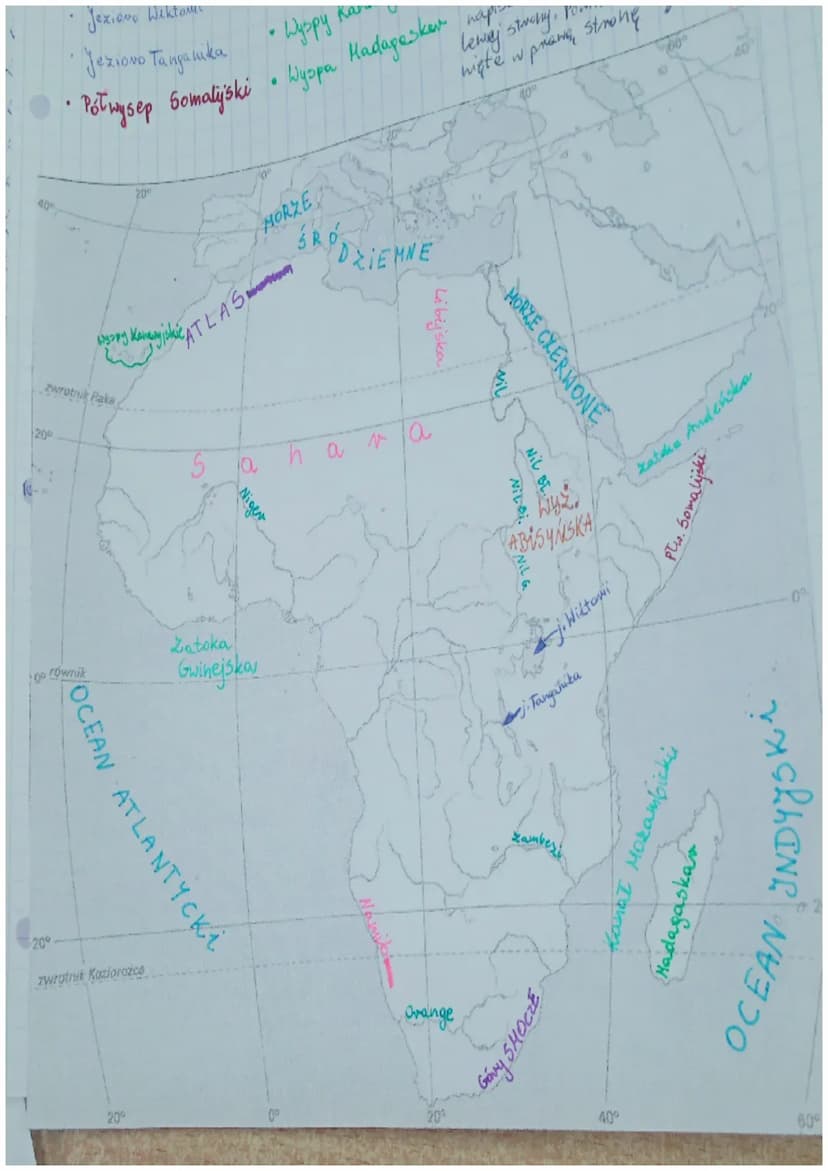 Jezioro Wiktorii
• Wyspy Kan
Jezioro Tanganika
• Wyspa Madagaskar
lewej strony,
w prawą stronę
• Półwysep Somalijski
60°
40°
40°
20°
0°
20°
40°
MORZE
ŚRÓ
DZIEMNE
ATLAS
Wyspy Kanaryjskie
Libijska
MORZE CZERWONE
20°
zwrotnik Raka
Nil
20°
Sahara
Zatoka Adeńska
Niger
Nil Bł.
Nil Bi.
WYŻ.
ABISYŃSKA
Płw. Somalijski
Nil G.
0°
j. Wiktorii
Zatoka
Gwinejska
0° równik
j. Tanganika
OCEAN ATLANTYCKI
OCEAN INDYJSKI
Kanał Mozambicki
Zambezi
Madagaskar
Namib
20°
2
zwrotnik Koziorożca
Orange
Góry SMOCZE
20°
0°
20°
40°
60°